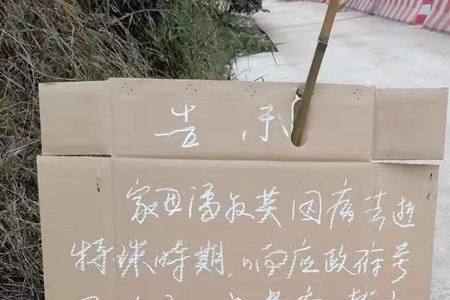 告示
家母潘叔英因病去逝
特殊时期，响应政府号